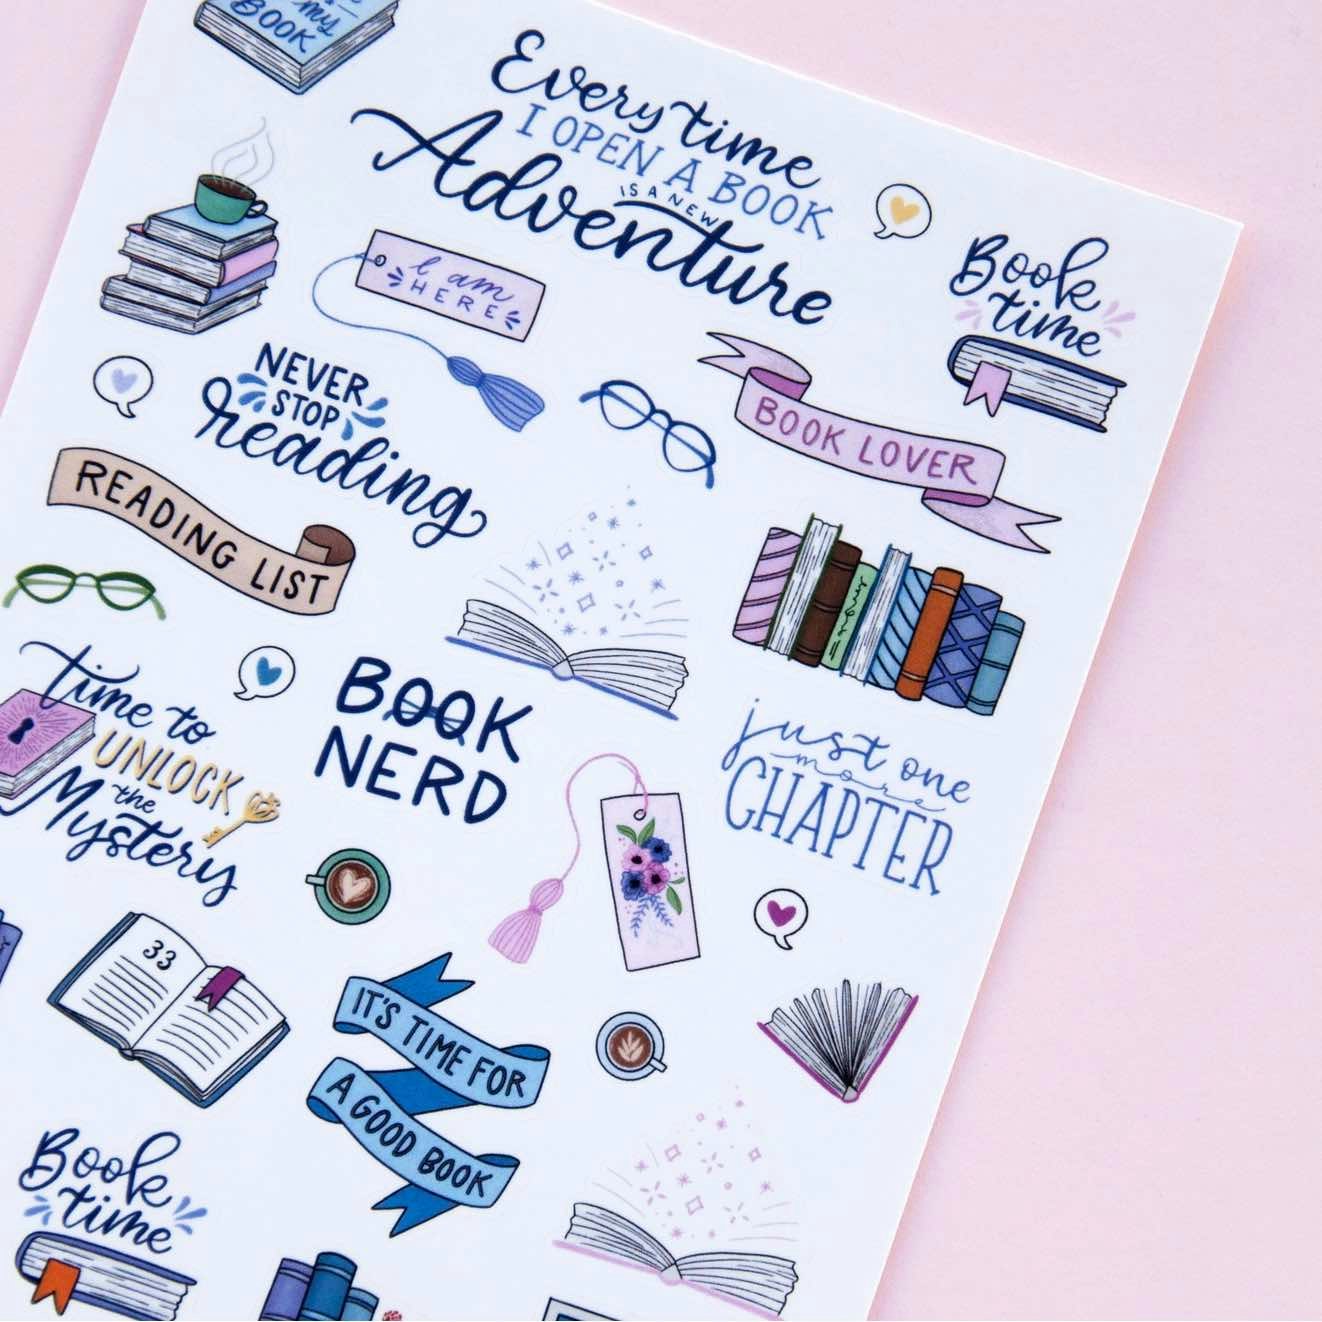 my
BOOK
Every time
I OPEN A BOOK
IS A NEW
Adventure
I am
HERE
Book
time
NEVER
STOP
reading
BOOK LOVER
READING LIST
time to
UNLOCK
the
Mystery
BOOK
NERD
just one
more
CHAPTER
33
IT'S TIME FOR
A GOOD BOOK
Book
time